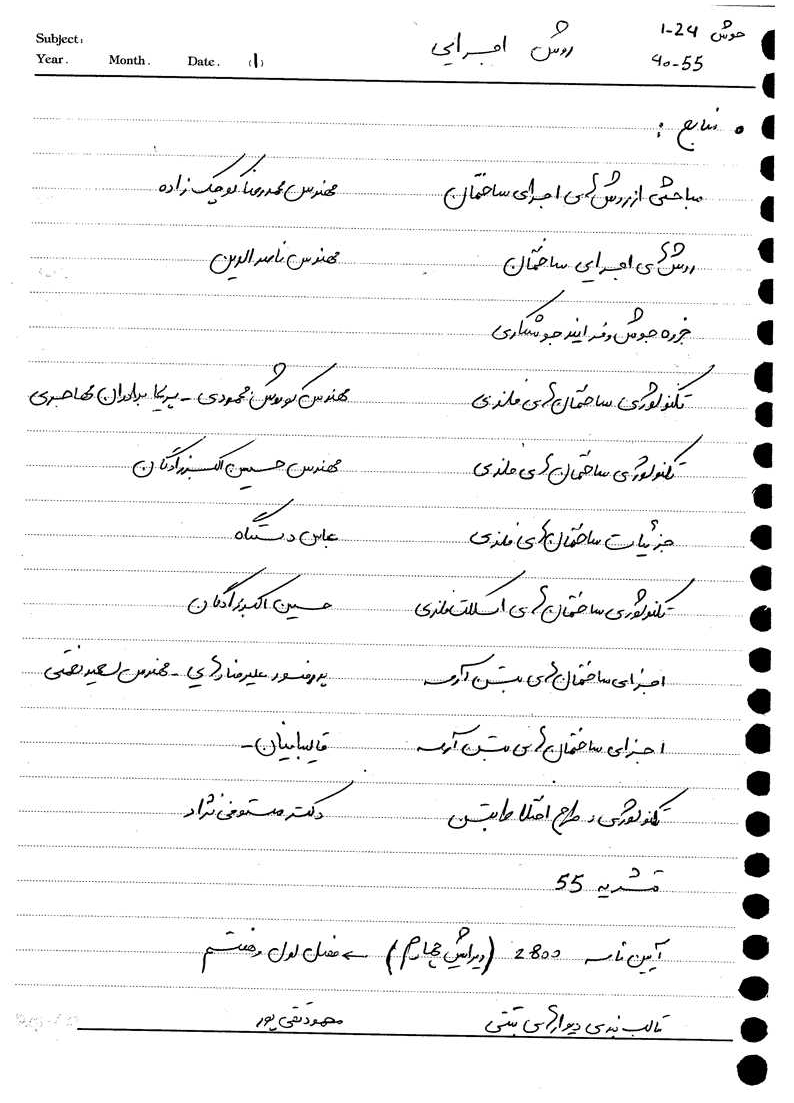 Subject:
Year. Month. Date. (1)
روش اجرایی
جوش 1-24
40-55
• منابع :
مباحثی از روش های اجرای ساختمان مهندس محمدرضا کوچک زاده
روش های اجرایی ساختمان مهندس ناصرالدین
جزوه جوش و فرایند جوشکاری
تکنولوژی ساختمان های فلزی مهندس کوروش محمودی - پریسا برادران مهاجری
تکنولوژی ساختمان های فلزی مهندس حسین اکبرزادگان
جزئیات ساختمان های فلزی عباس دستگاه
تکنولوژی ساختمان های اسکلت فلزی حسین اکبرزادگان
اجرای ساختمان های بتن آرمه پروفسور علیرضا رهایی - مهندس سعید نعمتی
اجرای ساختمان های بتن آرمه قالیبافیان -
تکنولوژی و طرح اختلاط بتن دکتر مستوفی نژاد
نشریه 55
آیین نامه 2800 (ویرایش چهارم) ← فصل اول و هفتم
قالب بندی دیوارهای بتنی محمود تقی پور